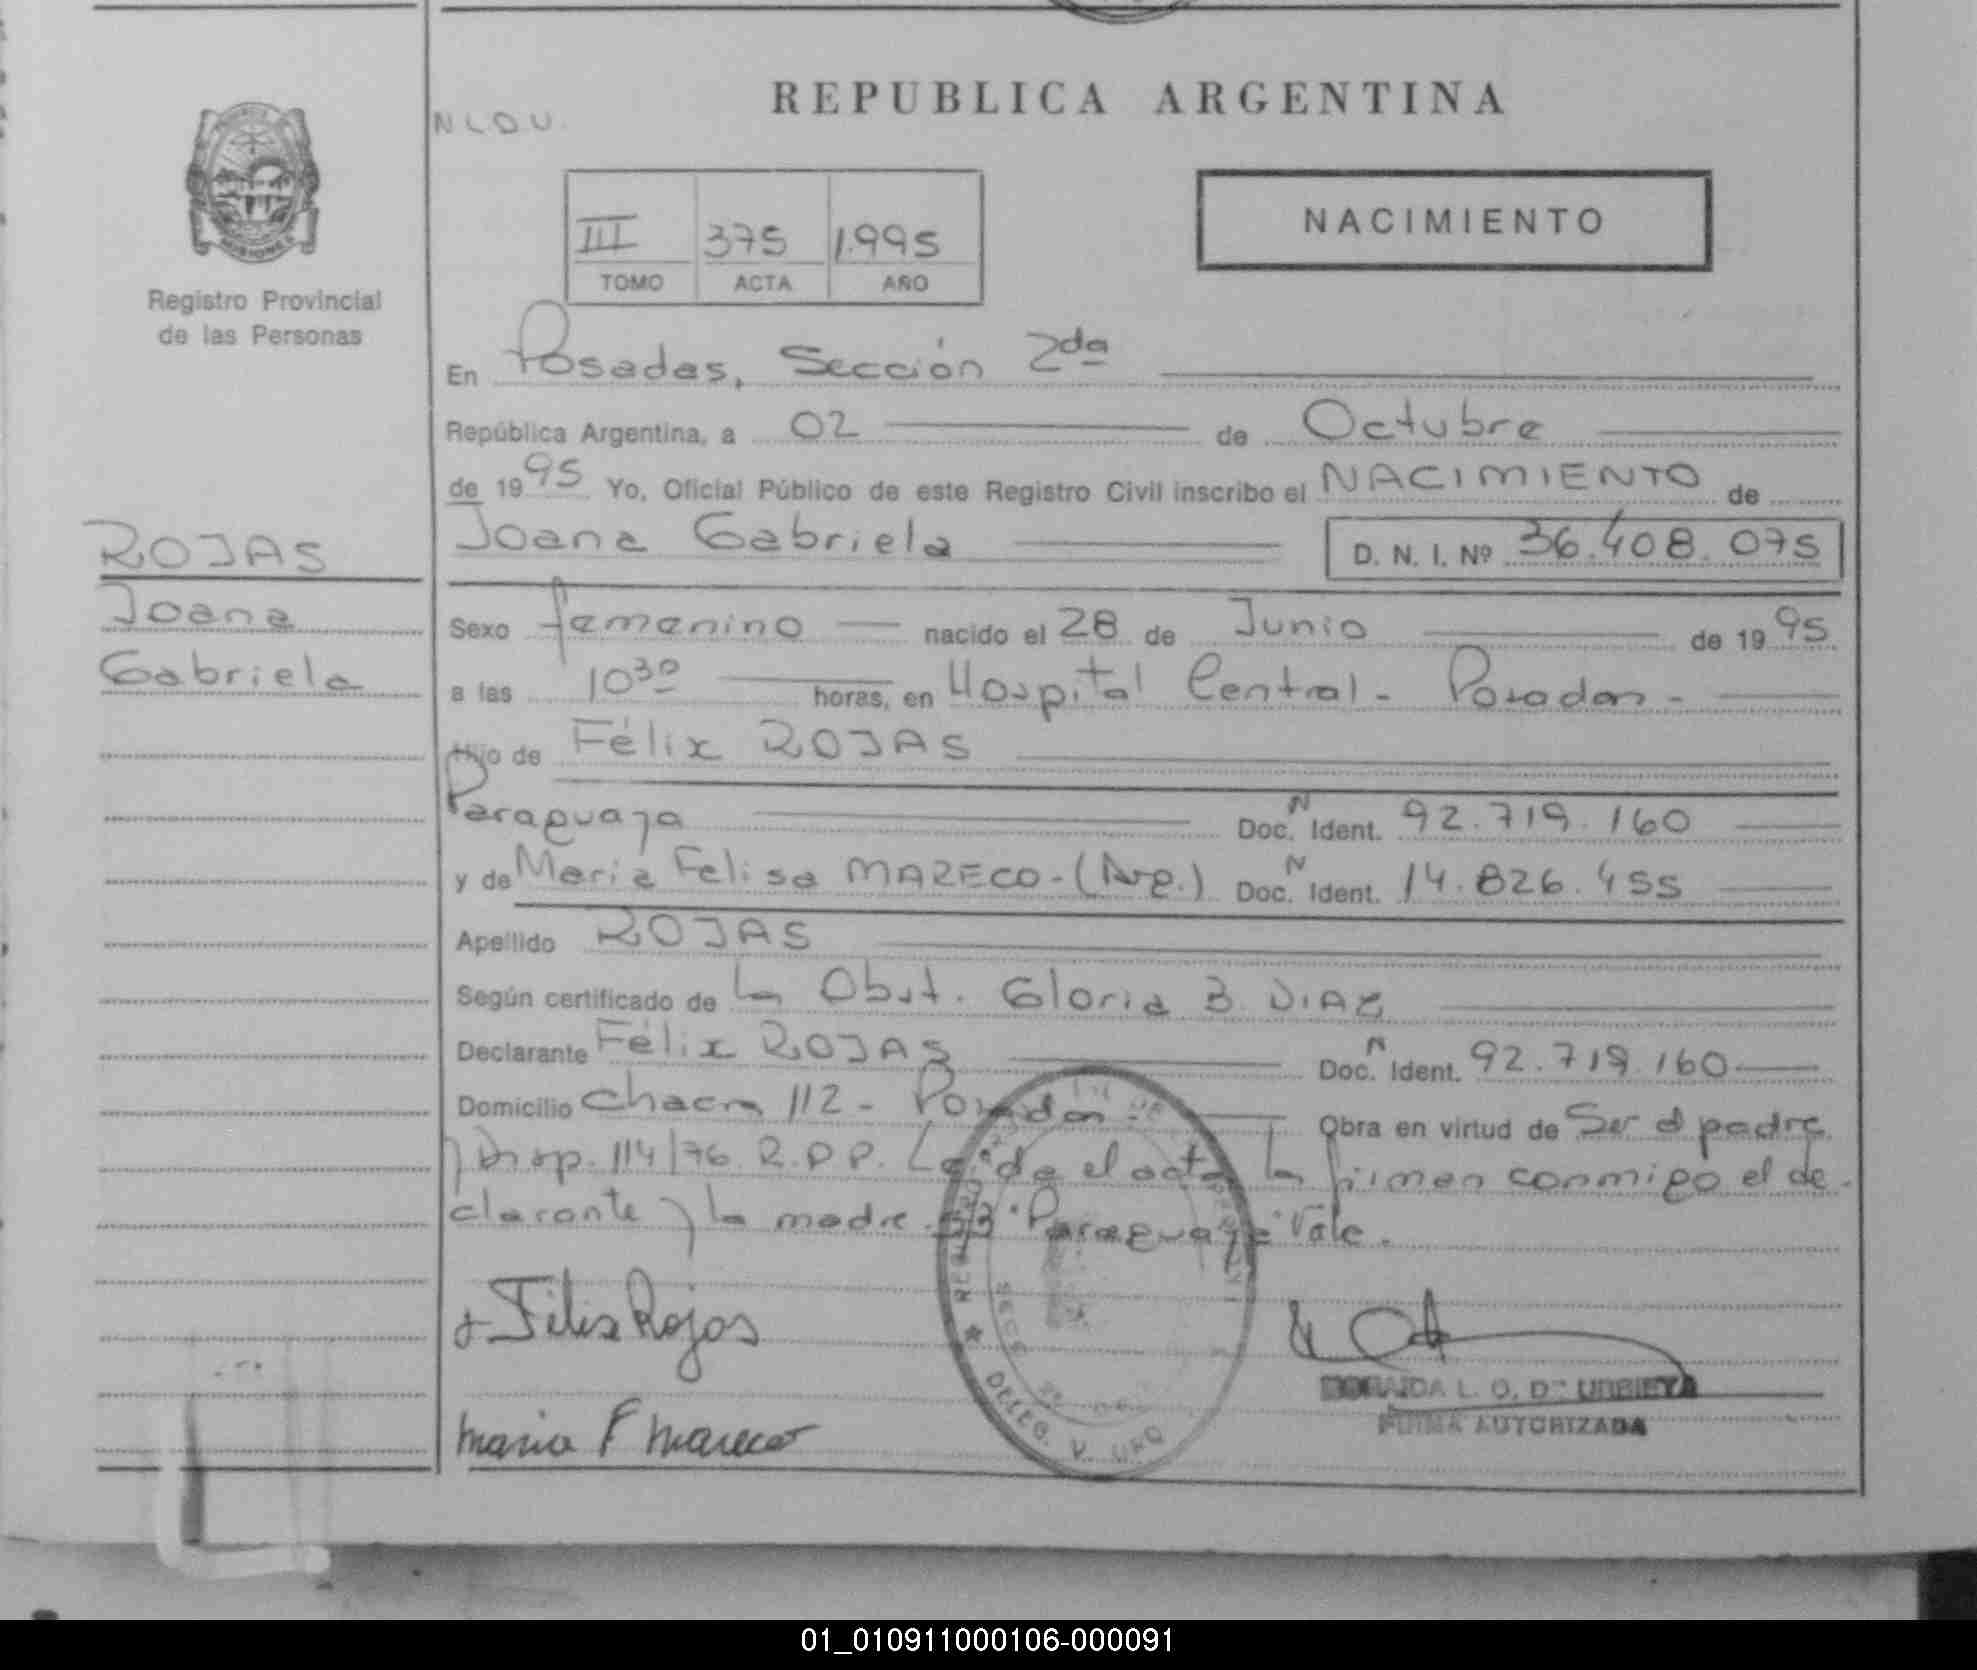 REPUBLICA ARGENTINA
N.L.D.U.
III 375 1.995
TOMO ACTA AÑO
NACIMIENTO
MISIONES
Registro Provincial
de las Personas
En Posadas, Sección 2da
República Argentina, a 02 de Octubre
de 1995 Yo, Oficial Público de este Registro Civil inscribo el NACIMIENTO de
ROJAS
Joana Gabriela D. N. I. Nº 36.408.075
Joana
Gabriela
Sexo femenino nacido el 28 de Junio de 1995
a las 10 30 horas, en Hospital Central - Posadas -
Hijo de Félix ROJAS
Paraguaya Doc. N Ident. 92.719.160
y de María Felisa MARECO - (Arg.) Doc. N Ident. 14.826.455
Apellido ROJAS
Según certificado de la Obst. Gloria B. DIAZ
Declarante Félix ROJAS Doc. N Ident. 92.719.160
Domicilio Chacra 112 - Posadas - Obra en virtud de Ser el padre
y Disp. 114/76 R.P.P. Leída el acta la firman conmigo el de-
clarante y la madre. "Paraguaya" Vale.
Felix Rojas
Maria F Mareco
L. O. DE URBIETA
FIRMA AUTORIZADA
DELEG. V. URQ
01_010911000106-000091